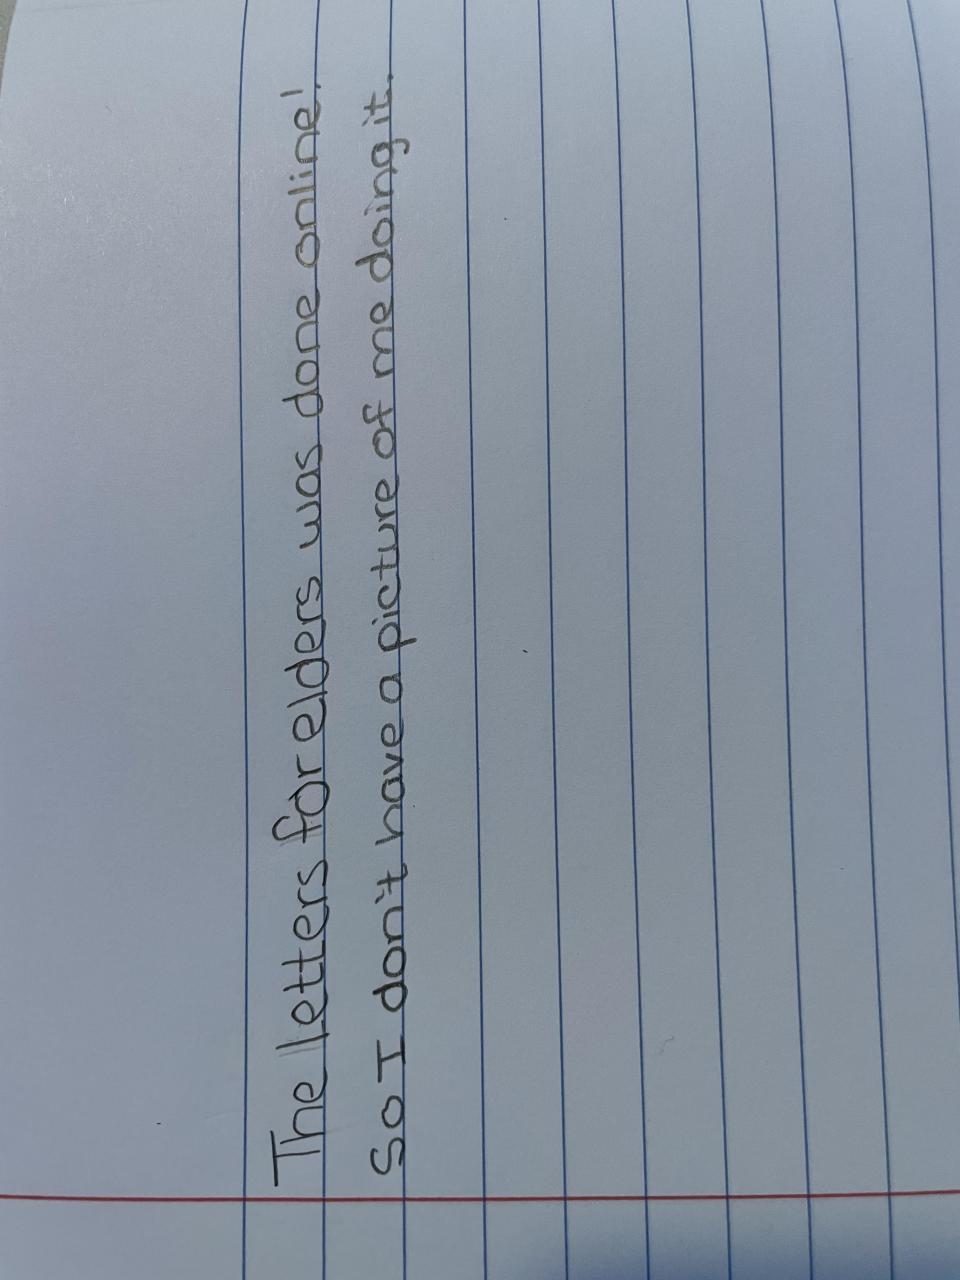 The letters for elders was done online!
So I don't have a picture of me doing it.